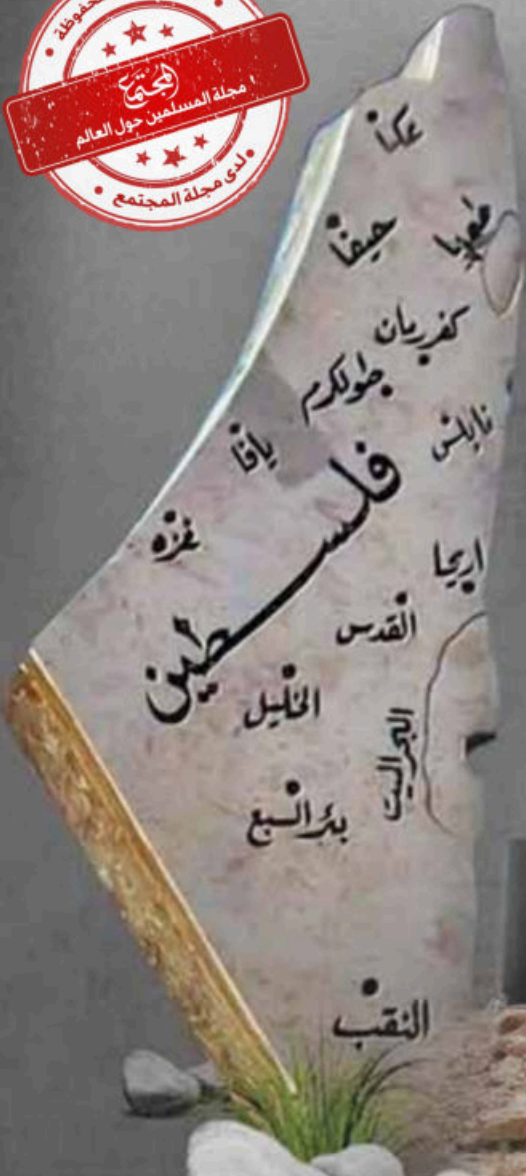 محفوظة
المجتمع
مجلة المسلمين حول العالم
لدى مجلة المجتمع
عكا
حيفا
كفر ريان
طولكرم
يافا
نابلس
فلسطين
غزه
اريحا
القدس
الخليل
البحر الميت
بئر السبع
النقب